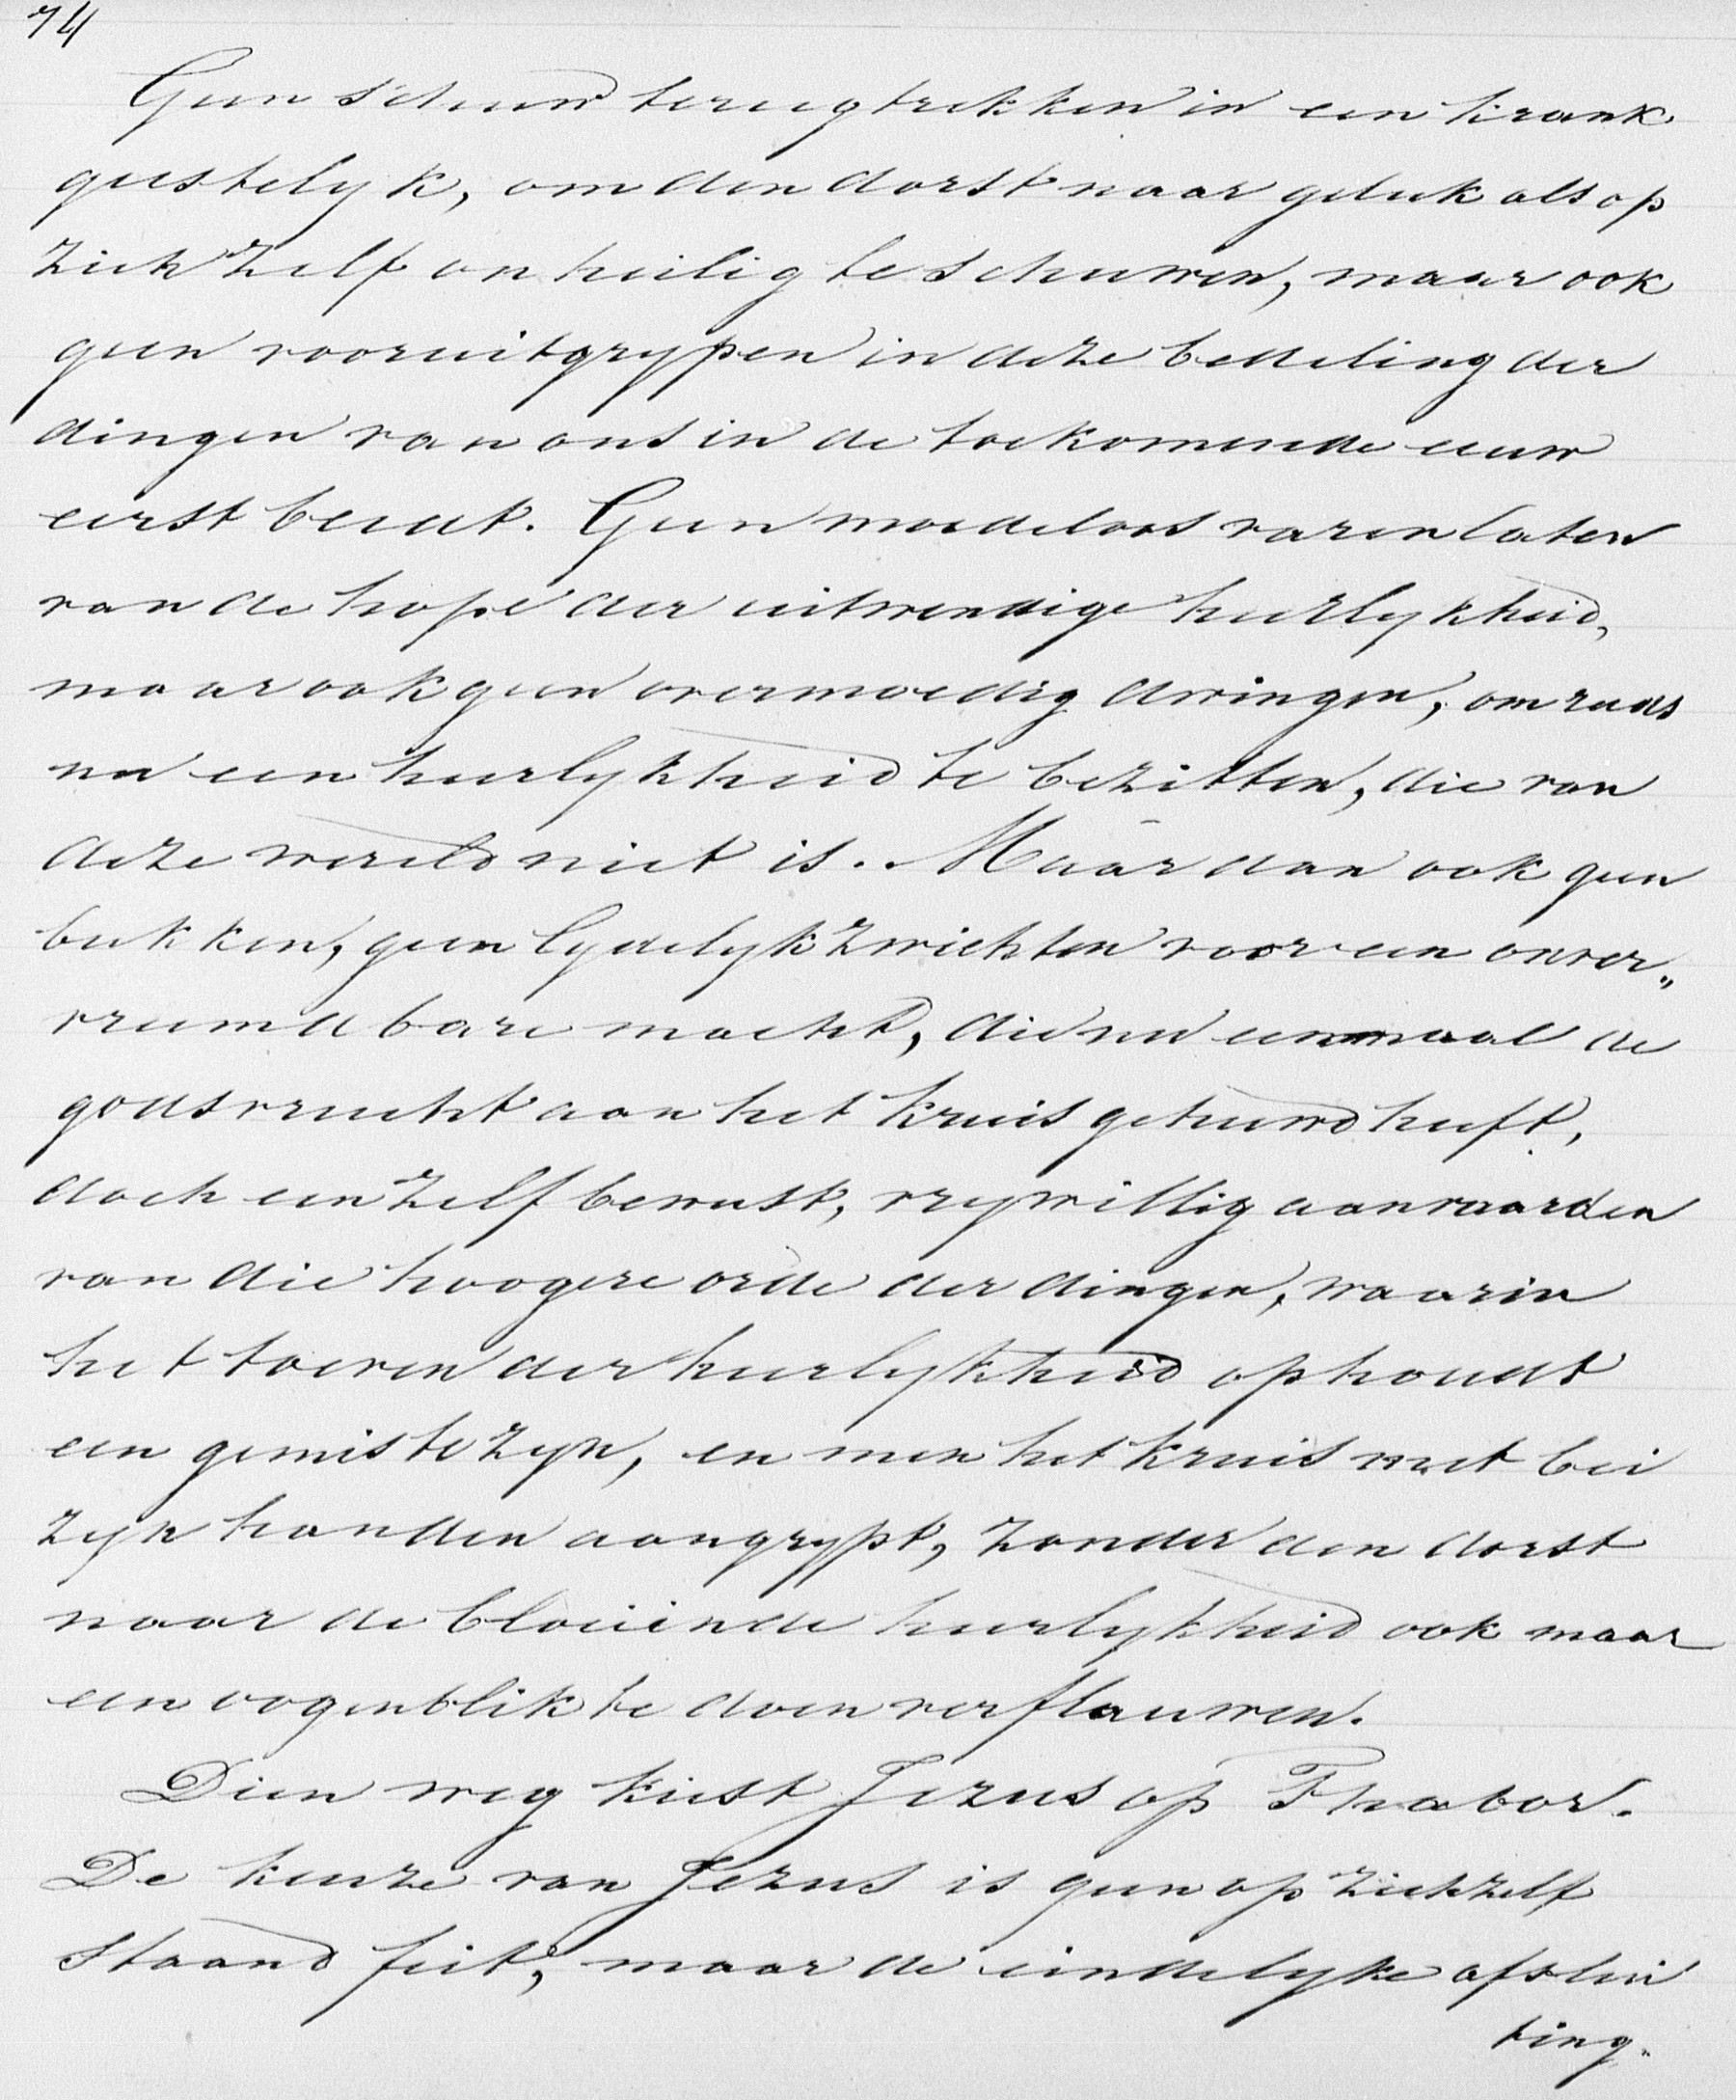 74
Geen schuw terugtrekken in een krank
geestelyk, om den dorst naar geluk als op
zich zelf onheilig te schuwen, maar ook
geen vooruitgrypen in deze bedeeling der
dingen van ons in de toekomende eeuw
eerst beidt. Geen moedeloos varen laten
van de hope der uitwendige heerlykheid,
maar ook geen overmoedig dringen, om reeds
nu een heerlykheid te bezitten, die van
deze wereld niet is. Maar dan ook geen
bukken, geen lydelyk zwichten voor een onver„
vreemdbare macht, die nu eenmaal de
godsvrucht aan het kruis gehuwd heeft,
doch een zelfbewust, vrywillig aanvaarden
van die hoogere orde der dingen, waarin
het toeven der heerlykheid ophoudt
een gemis te zyn, en men het kruis met bei
zyn handen aangrypt, zonder den dorst
naar de bloeiende heerlykheid ook maar
een oogenblik te doen verflauwen.
Dien weg kiest Jezus op Thabor.
De keuze van Jezus is geen op zichzelf
staand feit, maar de eindelyke afslui
ting.